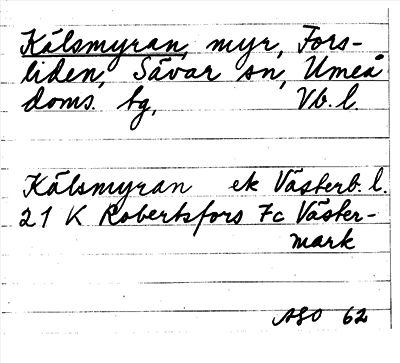 Kälsmyran, myr, Fors-
liden, Sävar sn, Umeå
doms. bg, Vb. l.
Kälsmyran ek Västerb. l.
21 K Robertsfors 7c Väster-
mark
ASO 62